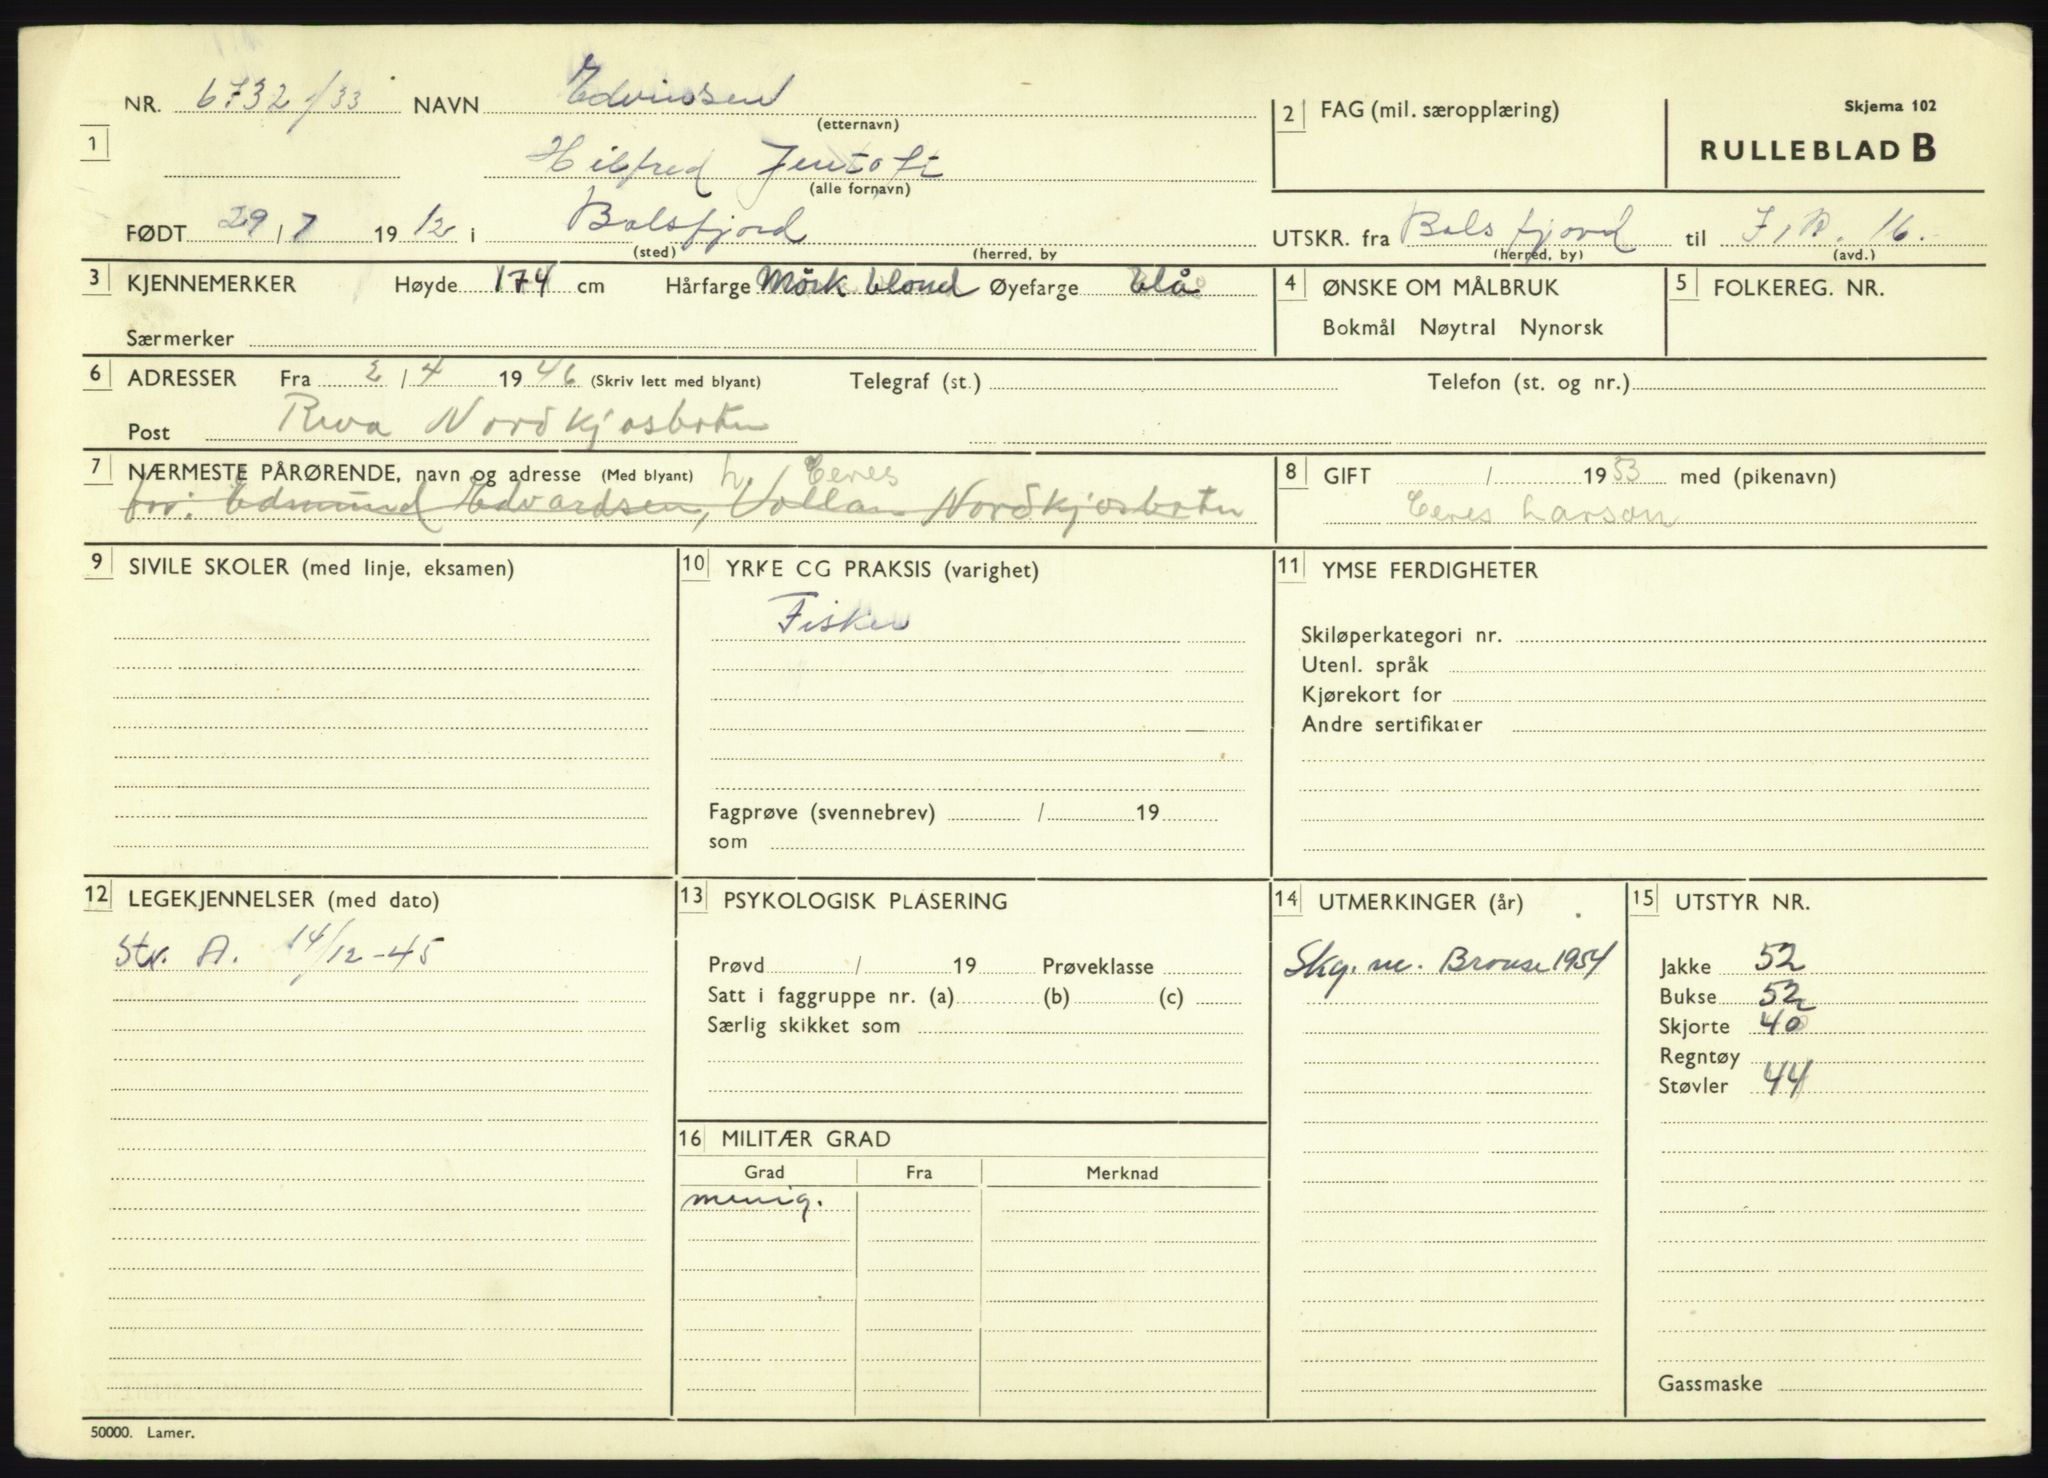 Skjema 102
RULLEBLAD B
1 NR. 6732/33 NAVN
(etternavn)
Hilfred Jentoft
(alle fornavn)
FØDT 29/7 1912 i Balsfjord
(sted) (herred, by
2 FAG (mil. særopplæring)
UTSKR. fra Balsfjord til I.R. 16.
(herred, by) (avd.)
3 KJENNEMERKER Høyde 174 cm Hårfarge Mörk blond Øyefarge blå
Særmerker
4 ØNSKE OM MÅLBRUK
Bokmål Nøytral Nynorsk
5 FOLKEREG. NR.
6 ADRESSER Fra 2/4 1946 (Skriv lett med blyant) Telegraf (st.) Telefon (st. og nr.)
Post Nordkjosboten
7 NÆRMESTE PÅRØRENDE, navn og adresse (Med blyant) h.
for: Edmund Edvardsen, Vollan Nordkjosboten
8 GIFT / 1953 med (pikenavn)
Larson
9 SIVILE SKOLER (med linje, eksamen)
10 YRKE CG PRAKSIS (varighet)
Fisker
Fagprøve (svennebrev) / 19
som
11 YMSE FERDIGHETER
Skiløperkategori nr.
Utenl. språk
Kjørekort for
Andre sertifikater
12 LEGEKJENNELSER (med dato)
Str. A. 14/12-45
13 PSYKOLOGISK PLASERING
Prøvd / 19 Prøveklasse
Satt i faggruppe nr. (a) (b) (c)
Særlig skikket som
14 UTMERKINGER (år)
Skg. m. Bronse 1954
15 UTSTYR NR.
Jakke 52
Bukse 52
Skjorte 40
Regntøy
Støvler 44
Gassmaske
16 MILITÆR GRAD
Grad Fra Merknad
menig.
50000. Lamer.